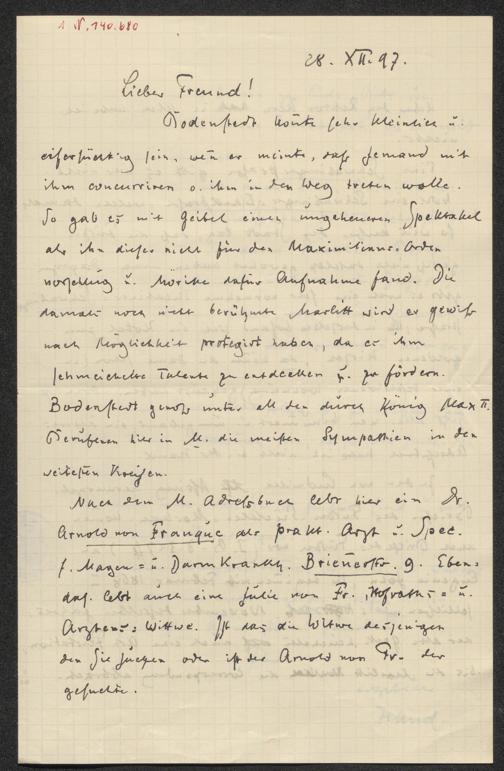 I N. 140.680
28. XII. 97.
Lieber Freund!
Bodenstedt konte sehr kleinlich u.
eifersüchtig sein, wen er meinte, daß jemand mit
ihm concurriren o. ihm in den Weg treten wolle.
So gab es mit Geibel einen ungeheueren Spektakel
als ihn dieser nicht für den Maximilians-Orden
vorschlug u. Mörike dafür Aufnahme fand. Die
damals noch nicht berühmte Marlitt wird er gewiß
nach Möglichkeit protegirt haben, da es ihm
schmeichelte Talente zu entdecken u. zu fördern.
Bodenstedt genoß unter all den durch König Max II.
Berufenen hier in M. die meisten Sympathien in den
weitesten Kreisen.
Nach dem M. Adreßbuch lebt hier ein Dr.
Arnold von Franque als prakt. Arzt u. Spec.
f. Magen= u. Darm Krankh. Briennerstr. 9. Eben=
das. lebt auch eine Julie von Fr., Hofraths= u.
Arztens= Wittwe. Ist das die Witwe desjenigen
den Sie suchen oder ist der Arnold von Fr. der
gesuchte.